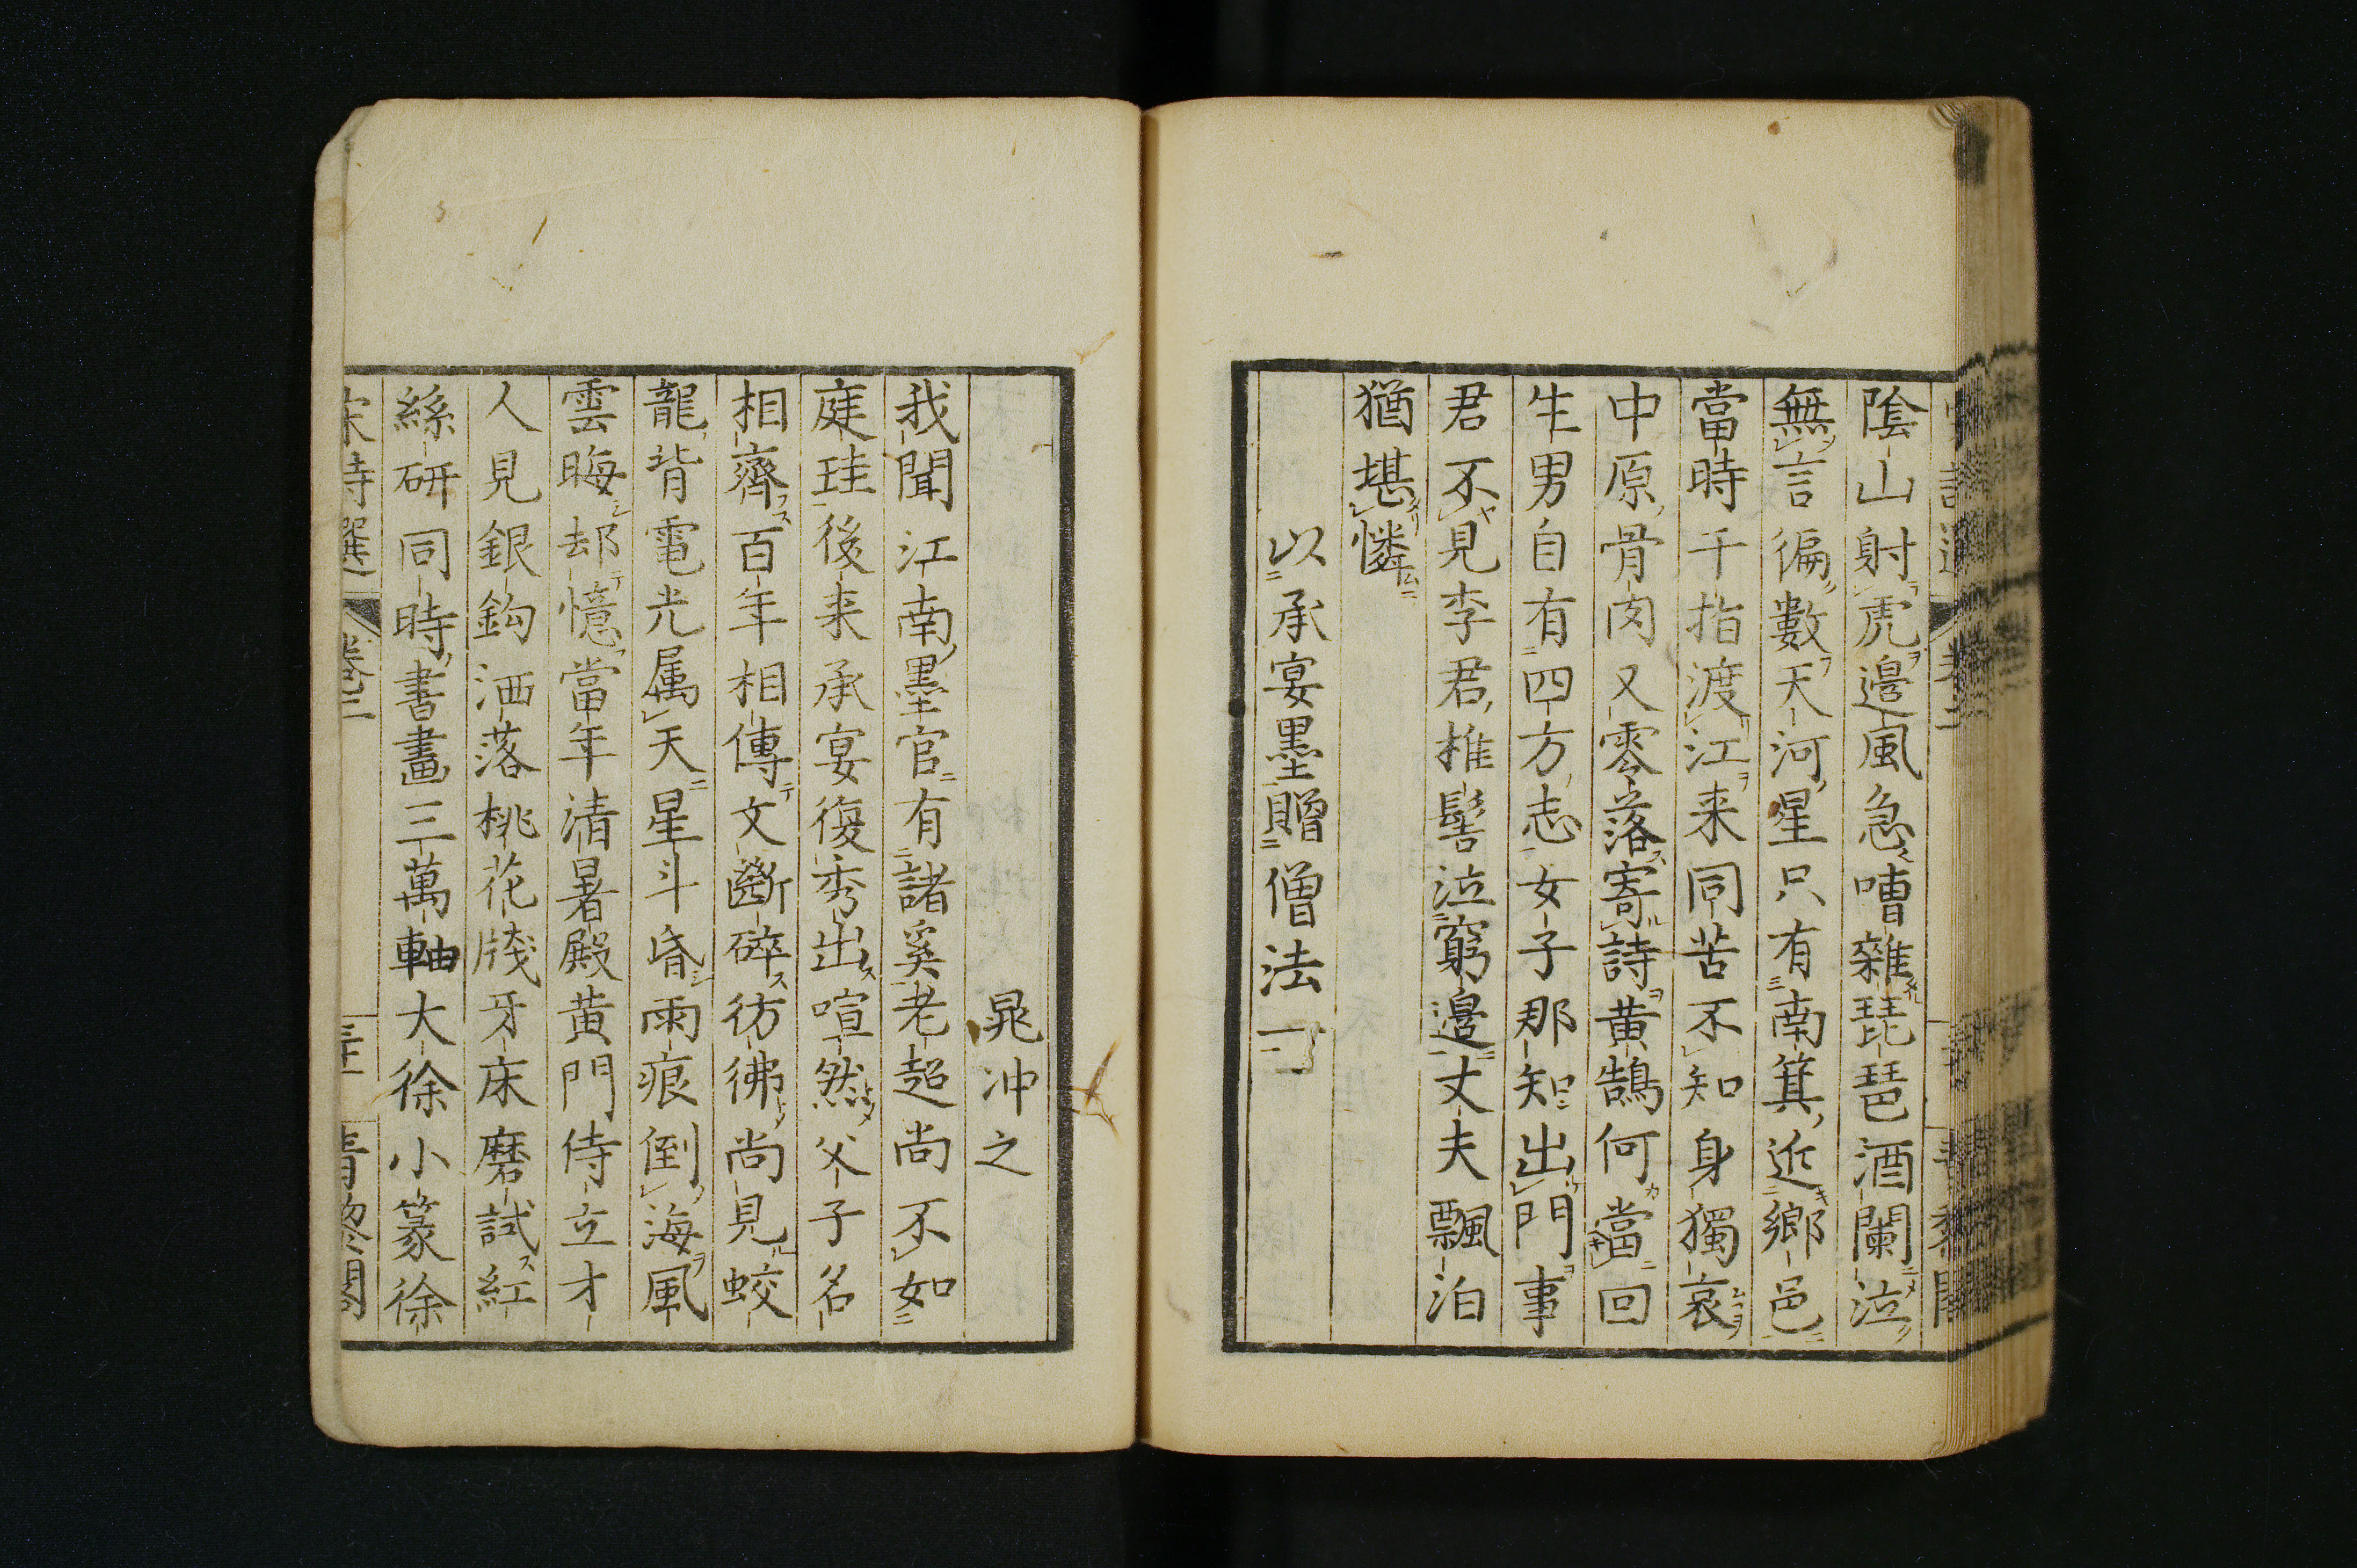 陰山射虎邉風急嘈雜琵琶酒闌泣
無言徧數天河星只有南箕近鄉邑
當時千指渡江来同苦不知身獨哀
中原骨肉又零落寄詩黄鵠何當回
生男自有四方志女子那知出門事
君不見李君椎髻泣窮邉丈夫飄泊
猶堪憐
以承宴墨贈僧法一
晁冲之
我聞江南墨官有諸奚老超尚不如
庭珪後来承宴復秀出喧然父子名
相齊百年相傳文斷碎彷彿尚見蛟
龍背電光属天星斗昏雨痕倒海風
雲晦却憶當年清暑殿黄門侍立才
人見銀鈎洒落桃花牋牙床磨試紅
絲研同時書畫三萬軸大徐小篆徐
宋詩選 卷三 青藜閣